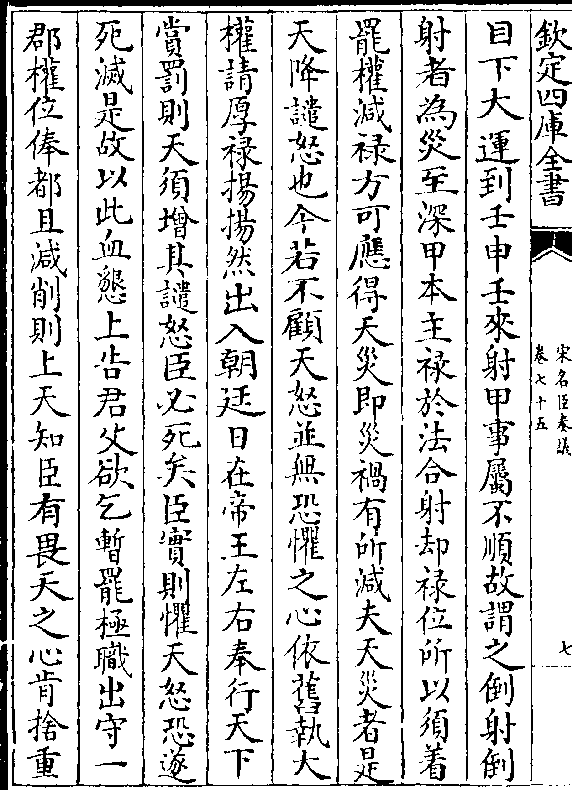 欽定四庫全書
宋名臣奏議
卷七十五
七
目下大運到壬申壬來射甲事屬不順故謂之倒射倒
射者為災至深甲本主禄於法合射却禄位所以須着
罷權減禄方可應得天災即災禍有所減夫天災者是
天降譴怒也今若不顧天怒並無恐懼之心依舊執大
權請厚禄揚揚然出入朝廷日在帝王左右奉行天下
賞罰則天須增其譴怒臣必死矣臣實則懼天怒恐遂
死滅是故以此血懇上告君父欲乞暫罷極職出守一
郡權位俸都且減削則上天知臣有畏天之心肯捨重